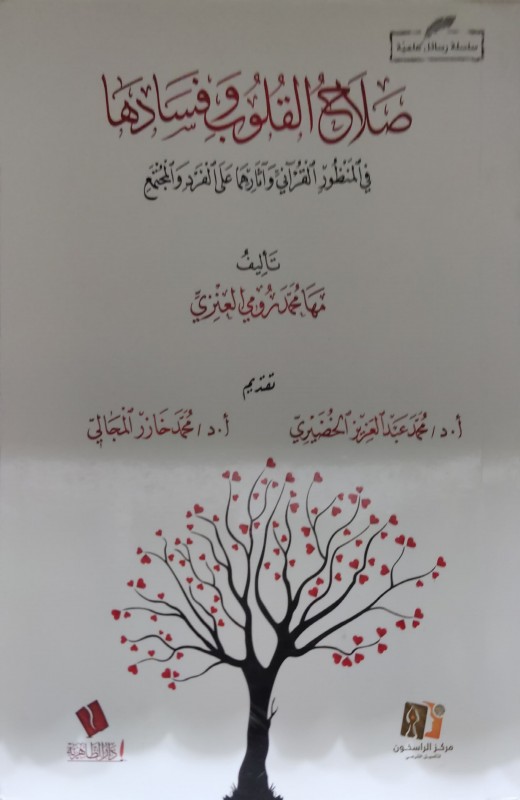 سلسلة رسائل علمية
صَلَاحُ القُلُوبِ وَفَسَادُهَا
فِي المَنْظُورِ القُرْآنِيِّ وَآثَارِهِمَا عَلَى الفَرْدِ وَالمُجْتَمَعِ
تَأْلِيفُ
مَهَا مُحَمَّد رُومِي العَنِزِيِّ
تقديم
أ.د/ مُحَمَّد عَبْد العَزِيز الخُضَيْرِيّ
أ.د/ مُحَمَّد خَازِر المَجَالِي
دار الظاهرية
مركز الراسخون